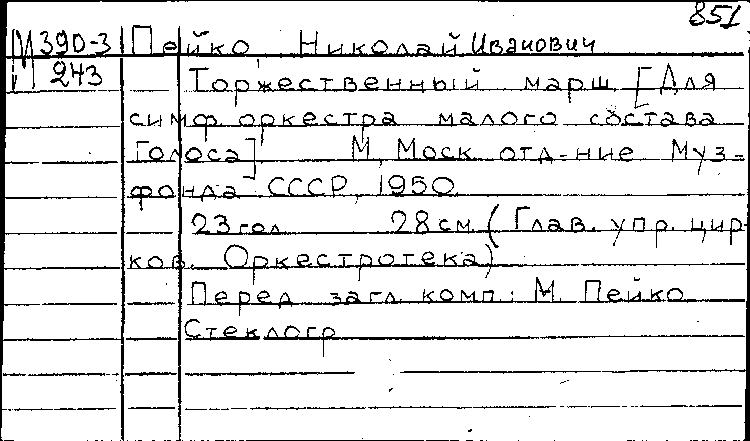 851
М 390-3 Пейко, Николай Иванович
243 Торжественный марш [Для
симф. оркестра малого состава
Голоса] М., Моск. отд-ние Муз-
фонда СССР, 1950.
23 гол. 28 см. (Глав. упр. цир-
ков. Оркестротека)
Перед загл. комп.: М. Пейко
Стеклогр.